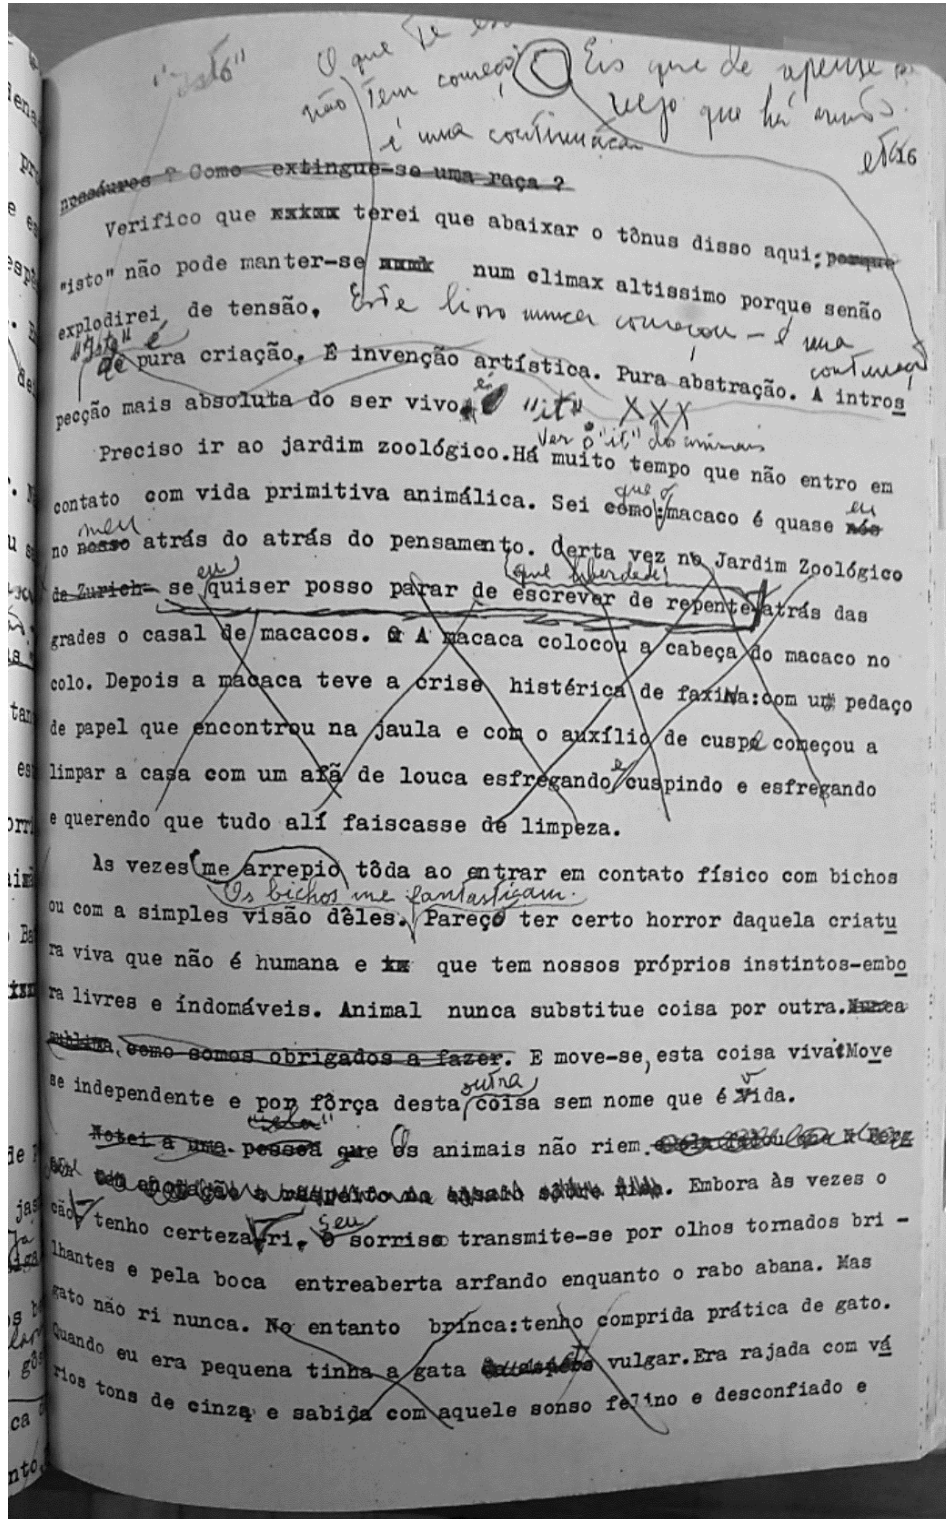 "Isto" O que
não tem começo Eis que de
é uma continuação vejo que há
etc 16
? Como extingue-se uma raça ?
Verifico que xxkxx terei que abaixar o tônus disso aqui: porque
"isto" não pode manter-se num climax altissimo porque senão
explodirei de tensão. Este livro nunca começou - é uma
continuação
"Isto" é
de pura criação. E invenção artística. Pura abstração. A intros
pecção mais absoluta do ser vivo. é o "it" XXX
Ver o "it" do animais
Preciso ir ao jardim zoológico.Há muito tempo que não entro em
contato com vida primitiva animálica. Sei como: que o macaco é quase nós eu
no nosso meu atrás do atrás do pensamento. Certa vez no Jardim Zoológico
de Zurich- se eu quiser posso parar de escrever de repente que liberdade! atrás das
grades o casal de macacos. A macaca colocou a cabeça do macaco no
colo. Depois a macaca teve a crise histérica de faxina:com um pedaço
de papel que encontrou na jaula e com o auxílio de cuspe começou a
limpar a casa com um afã de louca esfregando e cuspindo e esfregando
e querendo que tudo alí faiscasse de limpeza.
Às vezes me arrepio tôda ao entrar em contato físico com bichos
Os bichos me fantasticam.
ou com a simples visão dêles. Pareço ter certo horror daquela criatu
ra viva que não é humana e xx que tem nossos próprios instintos-embo
ra livres e índomáveis. Animal nunca substitue coisa por outra.Nunca
sublima, como somos obrigados a fazer. E move-se, esta coisa viva! Move
se independente e por fôrça desta outra coisa sem nome que é Vida.
Notei a uma pessoa que Os animais não riem.
Embora às vezes o
cão tenho certeza ri. O seu sorriso transmite-se por olhos tornados bri -
lhantes e pela boca entreaberta arfando enquanto o rabo abana. Mas
gato não ri nunca. No entanto brinca:tenho comprida prática de gato.
Quando eu era pequena tinha a gata vulgar.Era rajada com vá
rios tons de cinza e sabida com aquele sonso felino e desconfiado e